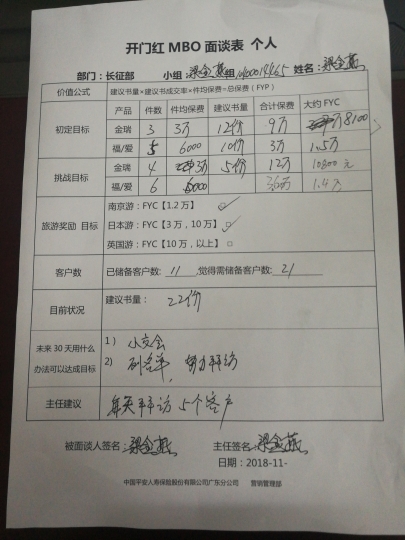 开门红 MBO 面谈表 个人
部门：长征部 小组：梁金燕组 姓名：梁金燕
价值公式 建议书量×建议书成交率×件均保费=总保费（FYP）
产品 件数 件均保费 建议书量 合计保费 大约 FYC
初定目标 金瑞 3 3万 12份 9万 8100
福/爱 5 6000 10份 3万 1.5万
挑战目标 金瑞 4 3万 5份 12万 10800元
福/爱 6 6000 3.6万 1.4万
旅游奖励 目标 南京游：FYC【1.2 万】 ✓
日本游：FYC【3 万，10 万】 ✓
英国游：FYC【10 万，以上】 □
客户数 已储备客户数: 11 ,觉得需储备客户数: 21
目前状况 建议书量： 22份
未来 30 天用什么办法可以达成目标 1） 小交会
2） 列名单，努力拜访
主任建议 每天拜访5个客户
被面谈人签名：梁金燕 主任签名：梁金燕
日期：2018-11-
中国平安人寿保险股份有限公司广东分公司 营销管理部